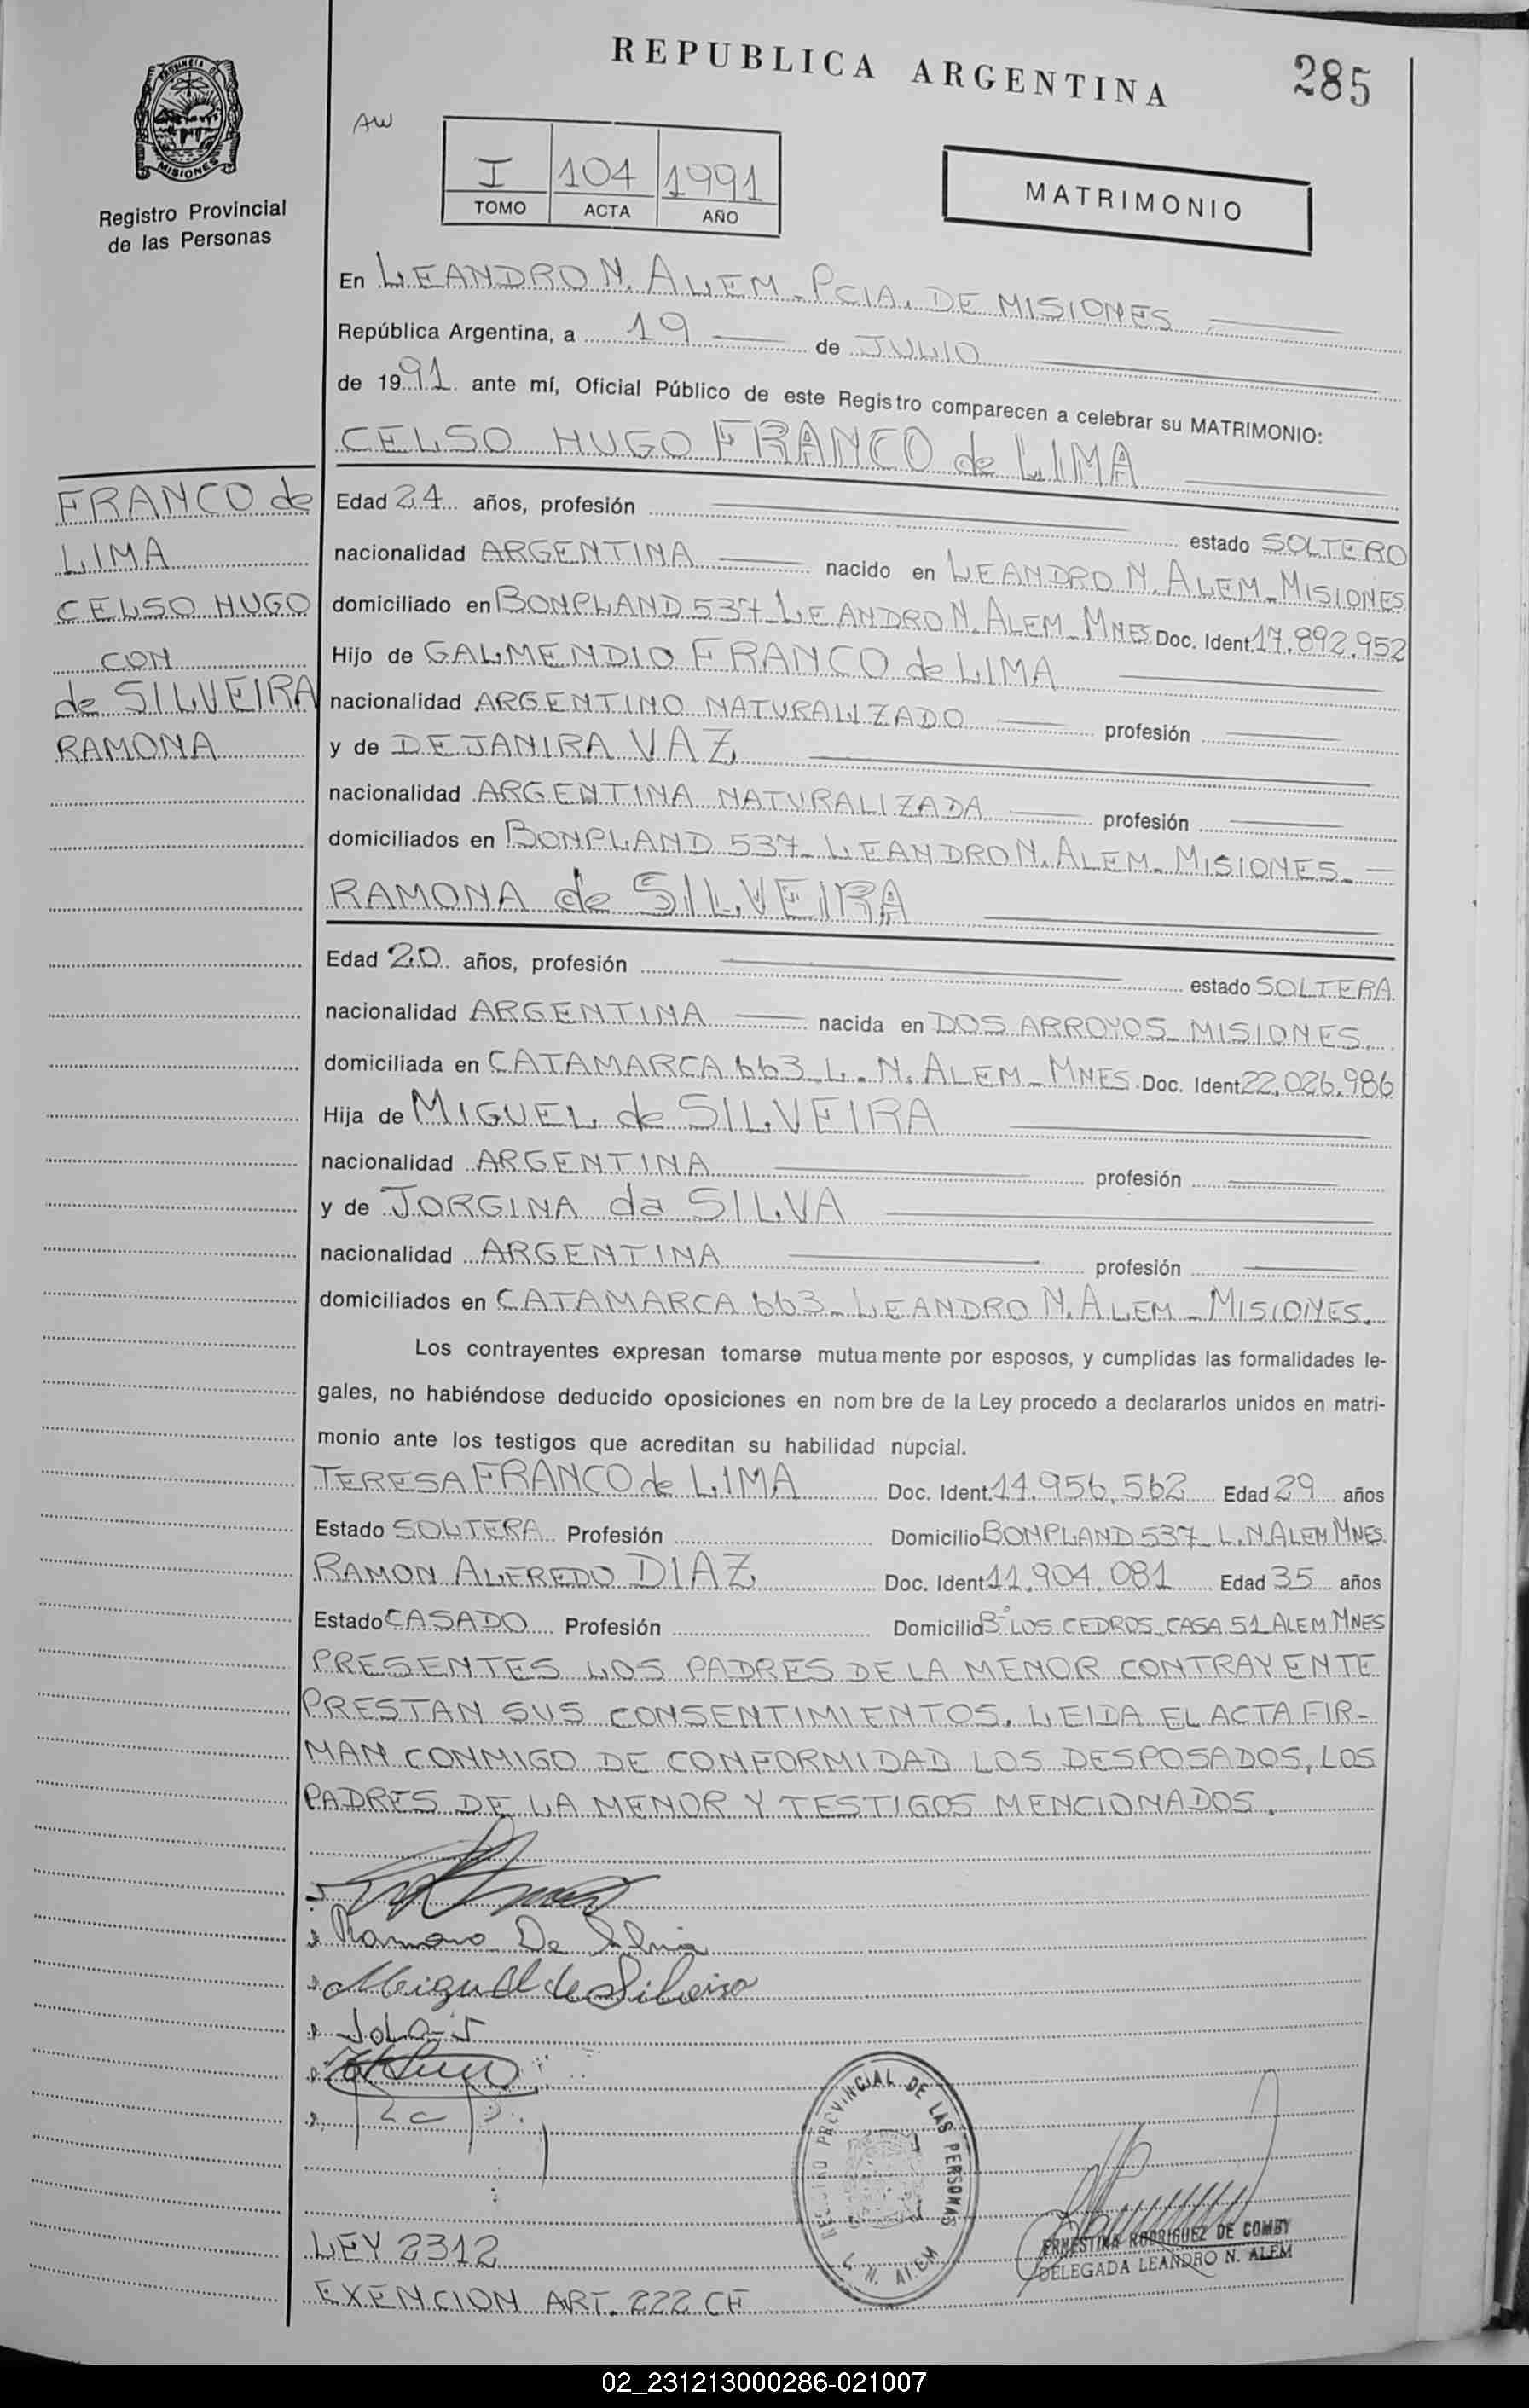 REPUBLICA ARGENTINA
285
PROVINCIA DE
MISIONES
Registro Provincial
de las Personas
AW
I 104 1991
TOMO ACTA AÑO
MATRIMONIO
En LEANDRO N. ALEM - PCIA. DE MISIONES
República Argentina, a 19 de JULIO
de 1991 ante mí, Oficial Público de este Registro comparecen a celebrar su MATRIMONIO:
CELSO HUGO FRANCO de LIMA
FRANCO de
LIMA
CELSO HUGO
CON
de SILVEIRA
RAMONA
Edad 24 años, profesión estado SOLTERO
nacionalidad ARGENTINA nacido en LEANDRO N. ALEM - MISIONES
domiciliado en BONPLAND 537 - LEANDRO N. ALEM - MNES Doc. Ident. 17.892.952
Hijo de GALMENDIO FRANCO de LIMA
nacionalidad ARGENTINO NATURALIZADO profesión
y de DEJANIRA VAZ
nacionalidad ARGENTINA NATURALIZADA profesión
domiciliados en BONPLAND 537 - LEANDRO N. ALEM - MISIONES. -
RAMONA de SILVEIRA
Edad 20 años, profesión estado SOLTERA
nacionalidad ARGENTINA nacida en DOS ARROYOS - MISIONES.
domiciliada en CATAMARCA 663 - L. N. ALEM - MNES Doc. Ident. 22.026.986
Hija de MIGUEL de SILVEIRA
nacionalidad ARGENTINA profesión
y de JORGINA da SILVA
nacionalidad ARGENTINA profesión
domiciliados en CATAMARCA 663 - LEANDRO N. ALEM - MISIONES.
Los contrayentes expresan tomarse mutuamente por esposos, y cumplidas las formalidades le-
gales, no habiéndose deducido oposiciones en nombre de la Ley procedo a declararlos unidos en matri-
monio ante los testigos que acreditan su habilidad nupcial.
TERESA FRANCO de LIMA Doc. Ident. 14.956.562 Edad 29 años
Estado SOLTERA Profesión Domicilio BONPLAND 537 - L.N. ALEM MNES.
RAMON ALFREDO DIAZ Doc. Ident. 11.904.081 Edad 35 años
Estado CASADO Profesión Domicilio B° LOS CEDROS - CASA 51 ALEM MNES
PRESENTES LOS PADRES DE LA MENOR CONTRAYENTE
PRESTAN SUS CONSENTIMIENTOS. LEIDA EL ACTA FIR-
MAN CONMIGO DE CONFORMIDAD LOS DESPOSADOS, LOS
PADRES DE LA MENOR Y TESTIGOS MENCIONADOS.
Ramona De
Miguel de Silveira
REGISTRO PROVINCIAL DE LAS PERSONAS
L. N. ALEM
ERNESTINA RODRIGUEZ DE COMBY
DELEGADA LEANDRO N. ALEM
LEY 2312
EXENCION ART. 222 CF
02_231213000286-021007